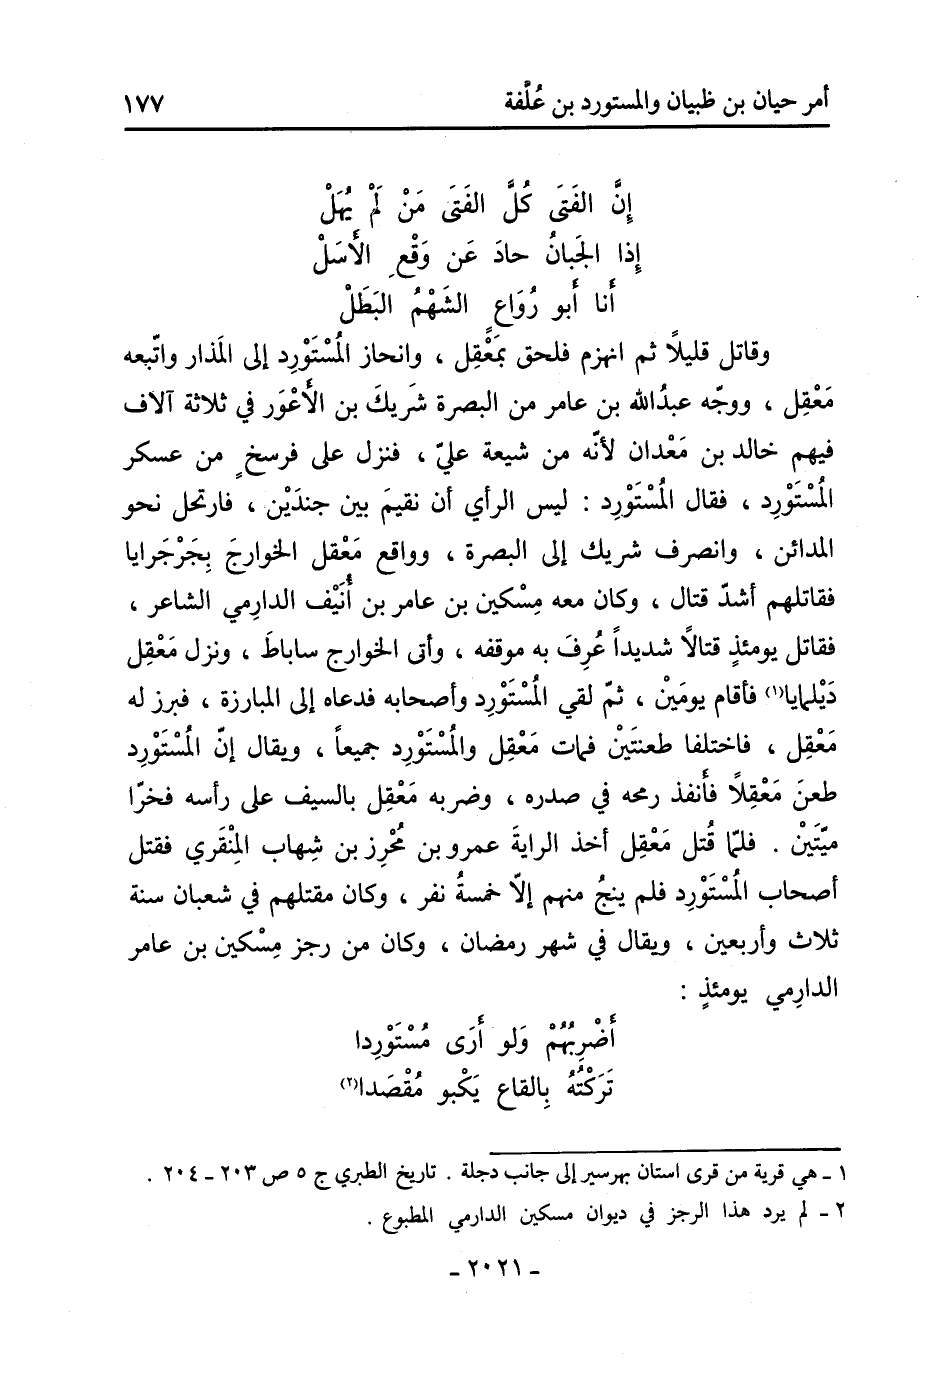 أمر حيان بن ظبيان والمستورد بن عُلَّفة ١٧٧
إنَّ الفَتَى كُلَّ الفَتَى مَنْ لَمْ يُهَلْ
إذا الجَبانُ حادَ عَن وَقْعِ الأَسَلْ
أنا أبو رُوَاعٍ الشَهْمُ البَطَلْ
وقاتل قليلاً ثم انهزم فلحق بمَعْقِل ، وانحاز المُسْتَوْرِد إلى المَذار واتّبعه
مَعْقِل ، ووجّه عبدُالله بن عامر من البصرة شَريكَ بن الأَعْوَر في ثلاثة آلاف
فيهم خالد بن مَعْدان لأنّه من شيعة عليّ ، فنزل على فرسخٍ من عسكر
المُسْتَوْرِد ، فقال المُسْتَوْرِد : ليس الرأي أن نقيمَ بين جندَيْن ، فارتحل نحو
المدائن ، وانصرف شريك إلى البصرة ، وواقع مَعْقل الخوارجَ بِجَرْجَرايا
فقاتلهم أشدّ قتال ، وكان معه مِسْكين بن عامر بن أُنَيْف الدارِمي الشاعر ،
فقاتل يومئذٍ قتالاً شديداً عُرِفَ به موقفه ، وأتى الخوارج ساباطَ ، ونزل مَعْقِل
دَيْلمايا(١) فأقام يومَيْن ، ثمّ لقي المُسْتَوْرِد وأصحابه فدعاه إلى المبارزة ، فبرز له
مَعْقِل ، فاختلفا طعنتَيْن فمات مَعْقِل والمُسْتَوْرِد جميعاً ، ويقال إنّ المُسْتَوْرِد
طعنَ مَعْقِلاً فأنفذ رمحه في صدره ، وضربه مَعْقِل بالسيف على رأسه فخرّا
ميّتَيْن . فلمّا قُتل مَعْقِل أخذ الرايةَ عمرو بن مُحْرِز بن شِهاب المِنْقَري فقتل
أصحاب المُسْتَوْرِد فلم ينجُ منهم إلاّ خمسةُ نفر ، وكان مقتلهم في شعبان سنة
ثلاث وأربعين ، ويقال في شهر رمضان ، وكان من رجز مِسْكين بن عامر
الدارِمي يومئذٍ :
أَضْرِبُهُمْ وَلو أَرَى مُسْتَوْرِدا
تَرَكْتُهُ بِالقاع يَكْبو مُقْصَدا(٢)
١ ـ هي قرية من قرى استان بهرسير إلى جانب دجلة . تاريخ الطبري ج ٥ ص ٢٠٣ ـ ٢٠٤ .
٢ ـ لم يرد هذا الرجز في ديوان مسكين الدارمي المطبوع .
ـ ٢٠٢١ ـ